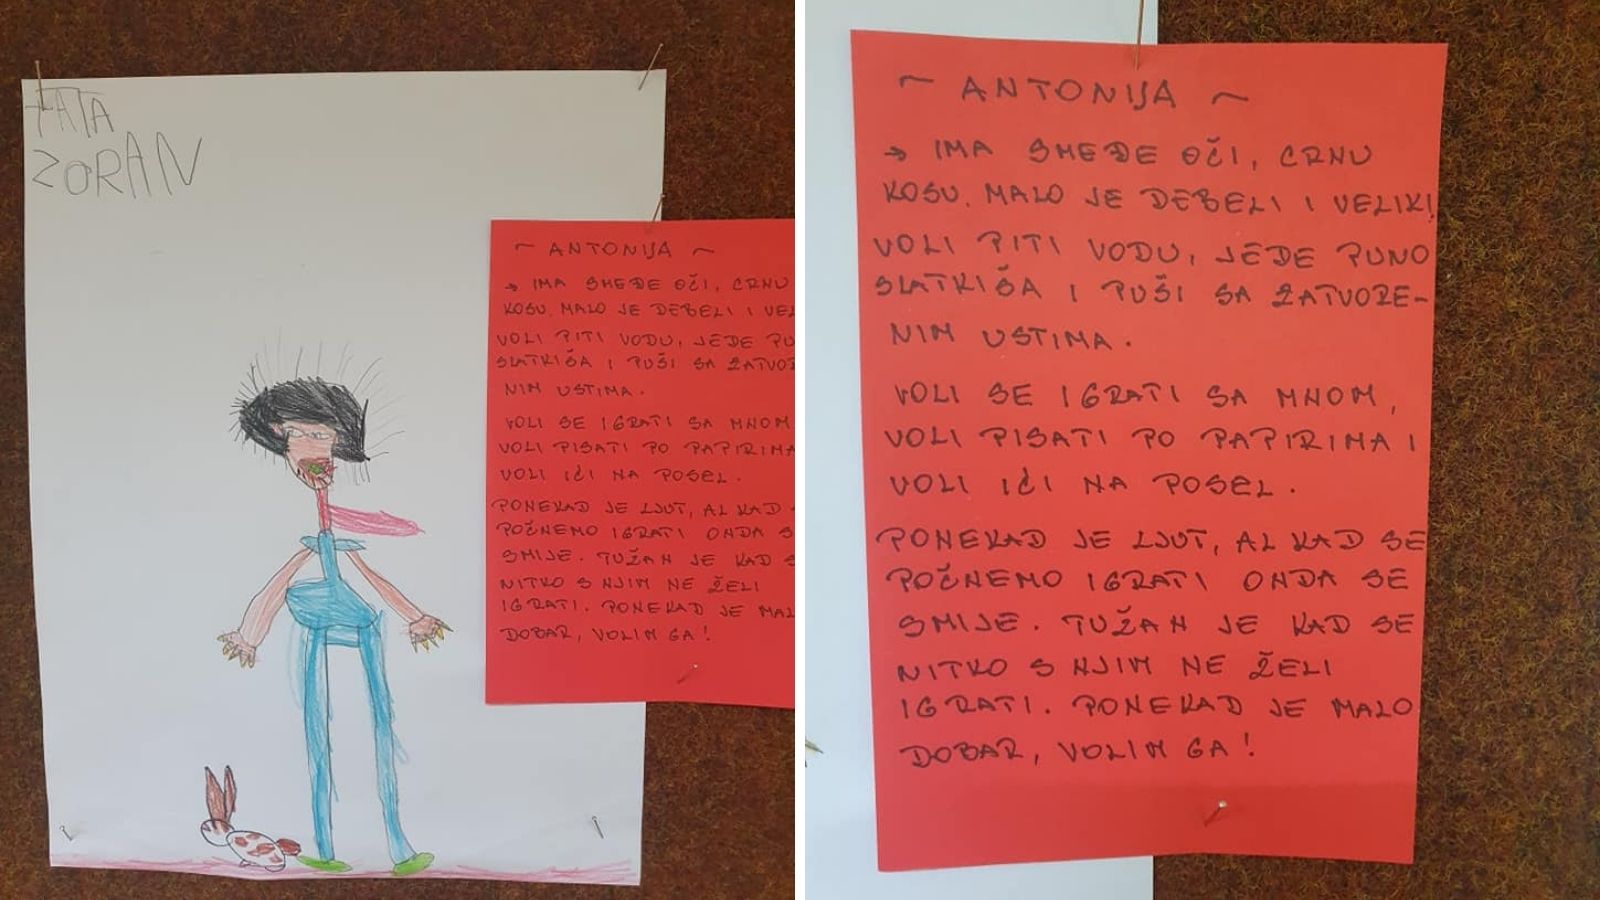 TATA
ZORAN
~ ANTONIJA ~
→ IMA SMEĐE OČI, CRNU
KOSU. MALO JE DEBELI I VEL
VOLI PITI VODU, JEDE PU
SLATKIŠA I PUŠI SA ZATVORE
NIM USTIMA.
VOLI SE IGRATI SA MNOM
VOLI PISATI PO PAPIRIMA
VOLI IĆI NA POSEL.
PONEKAD JE LJUT, AL KAD
POČNEMO IGRATI ONDA S
SMIJE. TUŽAN JE KAD S
NITKO S NJIM NE ŽELI
IGRATI. PONEKAD JE MAL
DOBAR, VOLIM GA!
~ ANTONIJA ~
→ IMA SMEĐE OČI, CRNU
KOSU. MALO JE DEBELI I VELIKI.
VOLI PITI VODU, JEDE PUNO
SLATKIŠA I PUŠI SA ZATVORE-
NIM USTIMA.
VOLI SE IGRATI SA MNOM,
VOLI PISATI PO PAPIRIMA I
VOLI IĆI NA POSEL.
PONEKAD JE LJUT, AL KAD SE
POČNEMO IGRATI ONDA SE
SMIJE. TUŽAN JE KAD SE
NITKO S NJIM NE ŽELI
IGRATI. PONEKAD JE MALO
DOBAR, VOLIM GA!